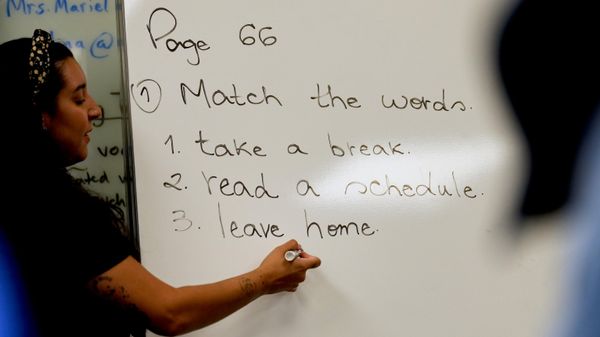 Mrs. Mariel
Page 66
1 Match the words.
1. take a break.
2. read a schedule.
3. leave home.